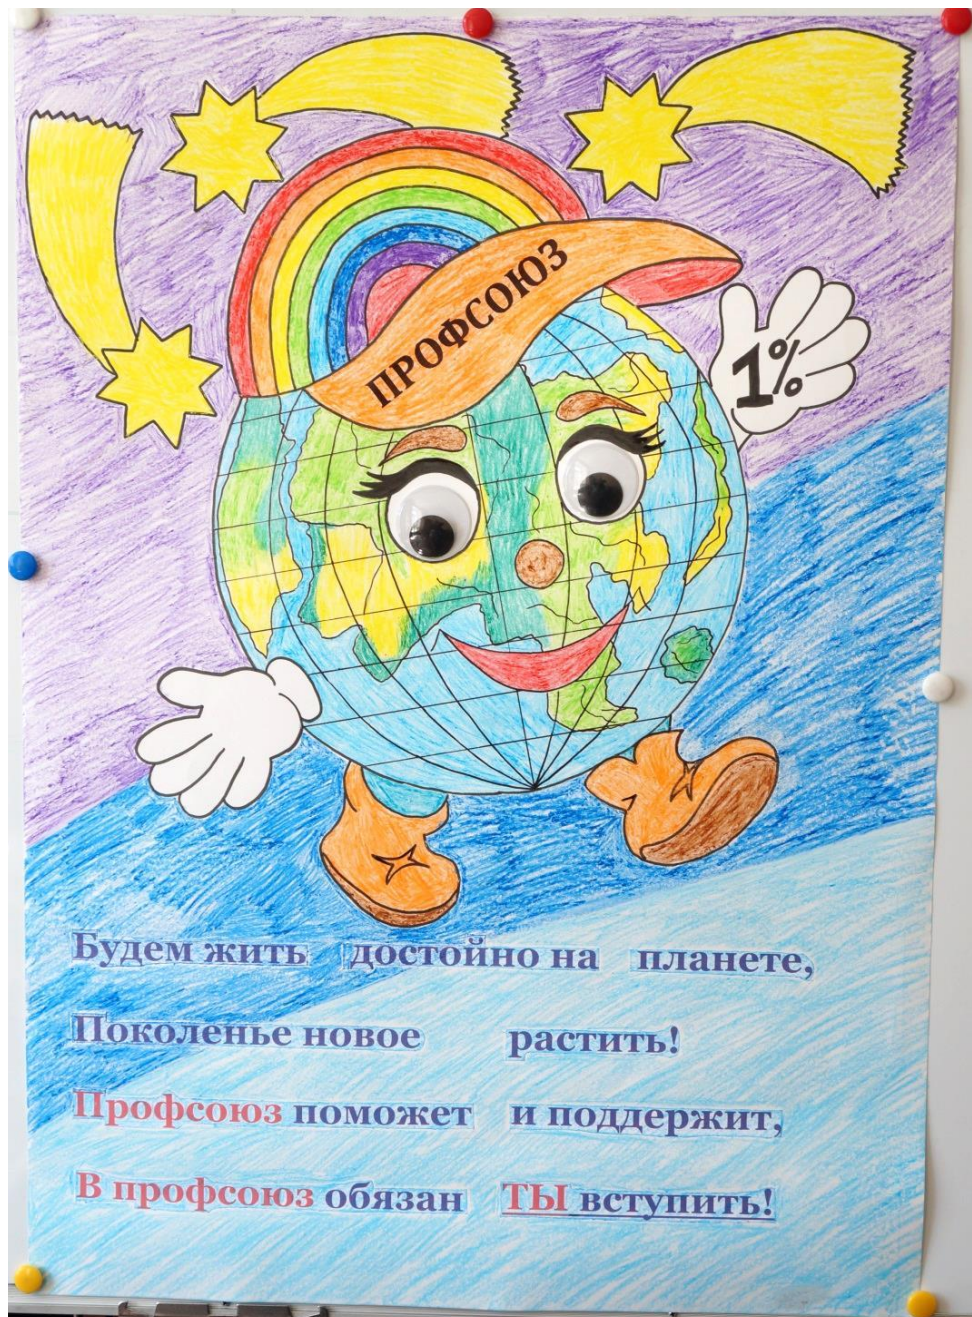 ПРОФСОЮЗ
1%
Будем жить достойно на планете,
Поколенье новое растить!
Профсоюз поможет и поддержит,
В профсоюз обязан ТЫ вступить!